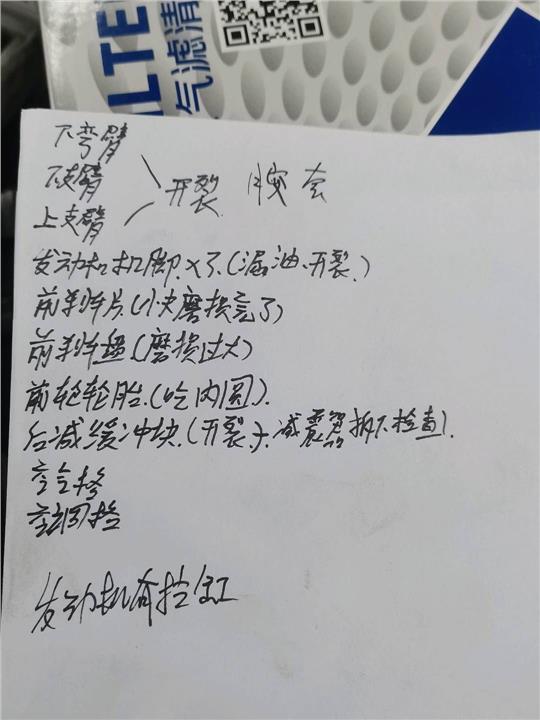 LTE
气滤清
下弯臂
下支臂
上支臂
开裂 胶套
发动机机脚×了(漏油、开裂)
前刹车片(快磨损完了)
前刹车盘(磨损过大)
前轮轮胎(吃内圆)
后减缓冲块(开裂)减震器拆下检查
空气格
空调格
发动机有拉缸